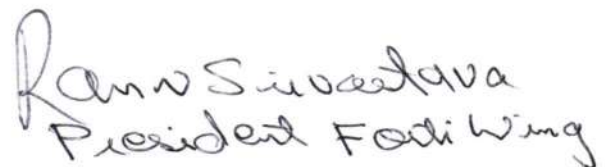 Rann Srivastava
President Forti Wing